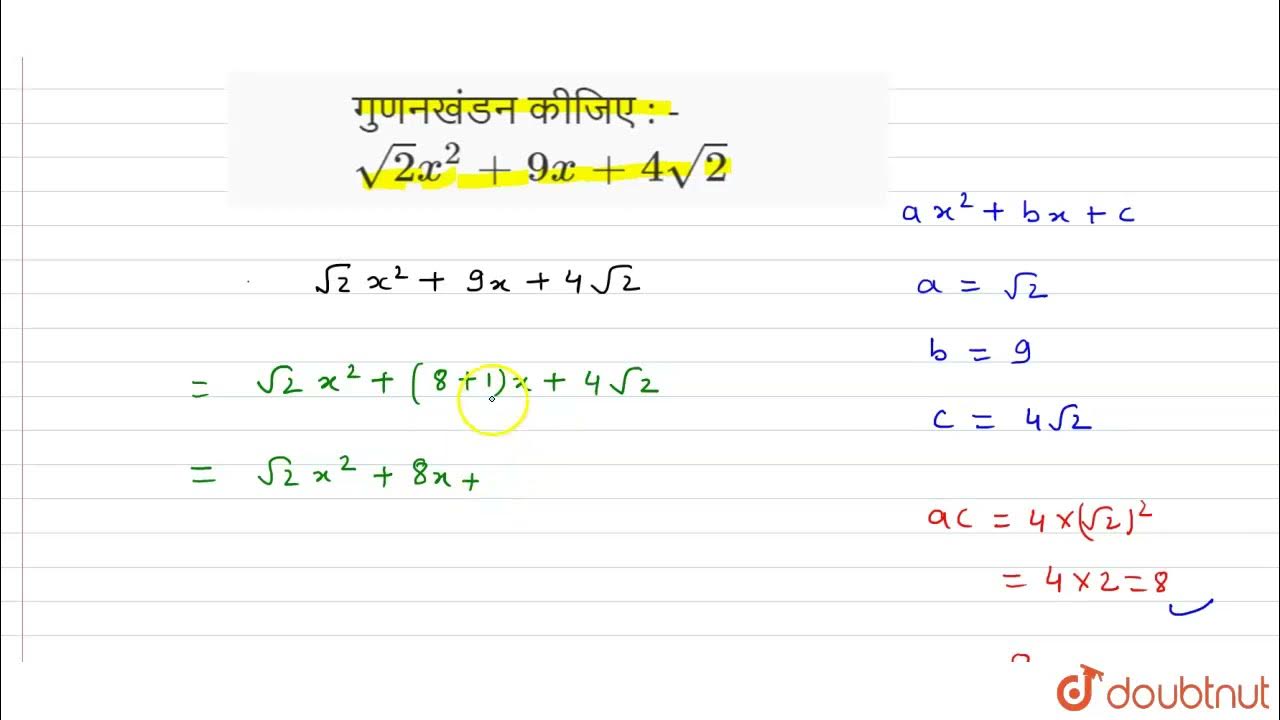 गुणनखंडन कीजिए : -
√2x² + 9x + 4√2
√2 x² + 9x + 4√2
= √2 x² + (8+1)x + 4√2
= √2 x² + 8x +
ax² + bx + c
a = √2
b = 9
c = 4√2
ac = 4×(√2)²
= 4×2=8
doubtnut